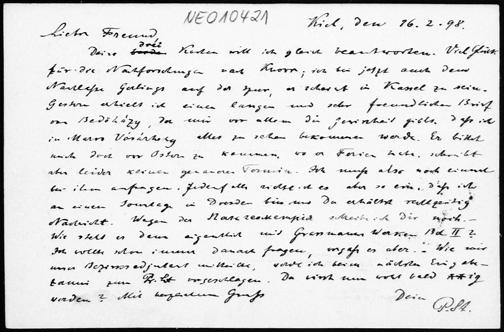 NEO10421
Kiel, den 16.2.98.
Lieber Freund,
drei
Deine beiden Karten will ich gleich beantworten. Viel Glück
für die Nachforschungen nach Knorr; ich bin jetzt auch dem
Nachlasse Gerlings auf der Spur, er scheint in Kassel zu sein.
Gestern erhielt ich einen langen und sehr freundlichen Brief
von Bedöházy, der mir vor allem die Gewissheit giebt, dass ich
in Maros Vásárhely alles zu sehen bekommen werde. Er bittet
mich dort vor Ostern zu kommen, wo er Ferien hat, schreibt
aber leider keinen genaueren Termin. Ich muss also noch einmal
bei ihm anfragen. Jedenfalls richte ich es aber so ein, dass ich
an einem Sonntage in Dresden bin und Du erhältst rechtzeitig
Nachricht. Wegen der schreibe ich Dir noch.
Wie steht es denn eigentlich mit Grassmanns Werken Bd II?
Ich wollte schon immer danach fragen, vergass es aber. Wie mir
unser mitteilte, werde ich beim nächsten
zum vorgeschlagen. Du wirst nun wohl bald
werden? Mit herzlichem Gruss
Dein
P. St.